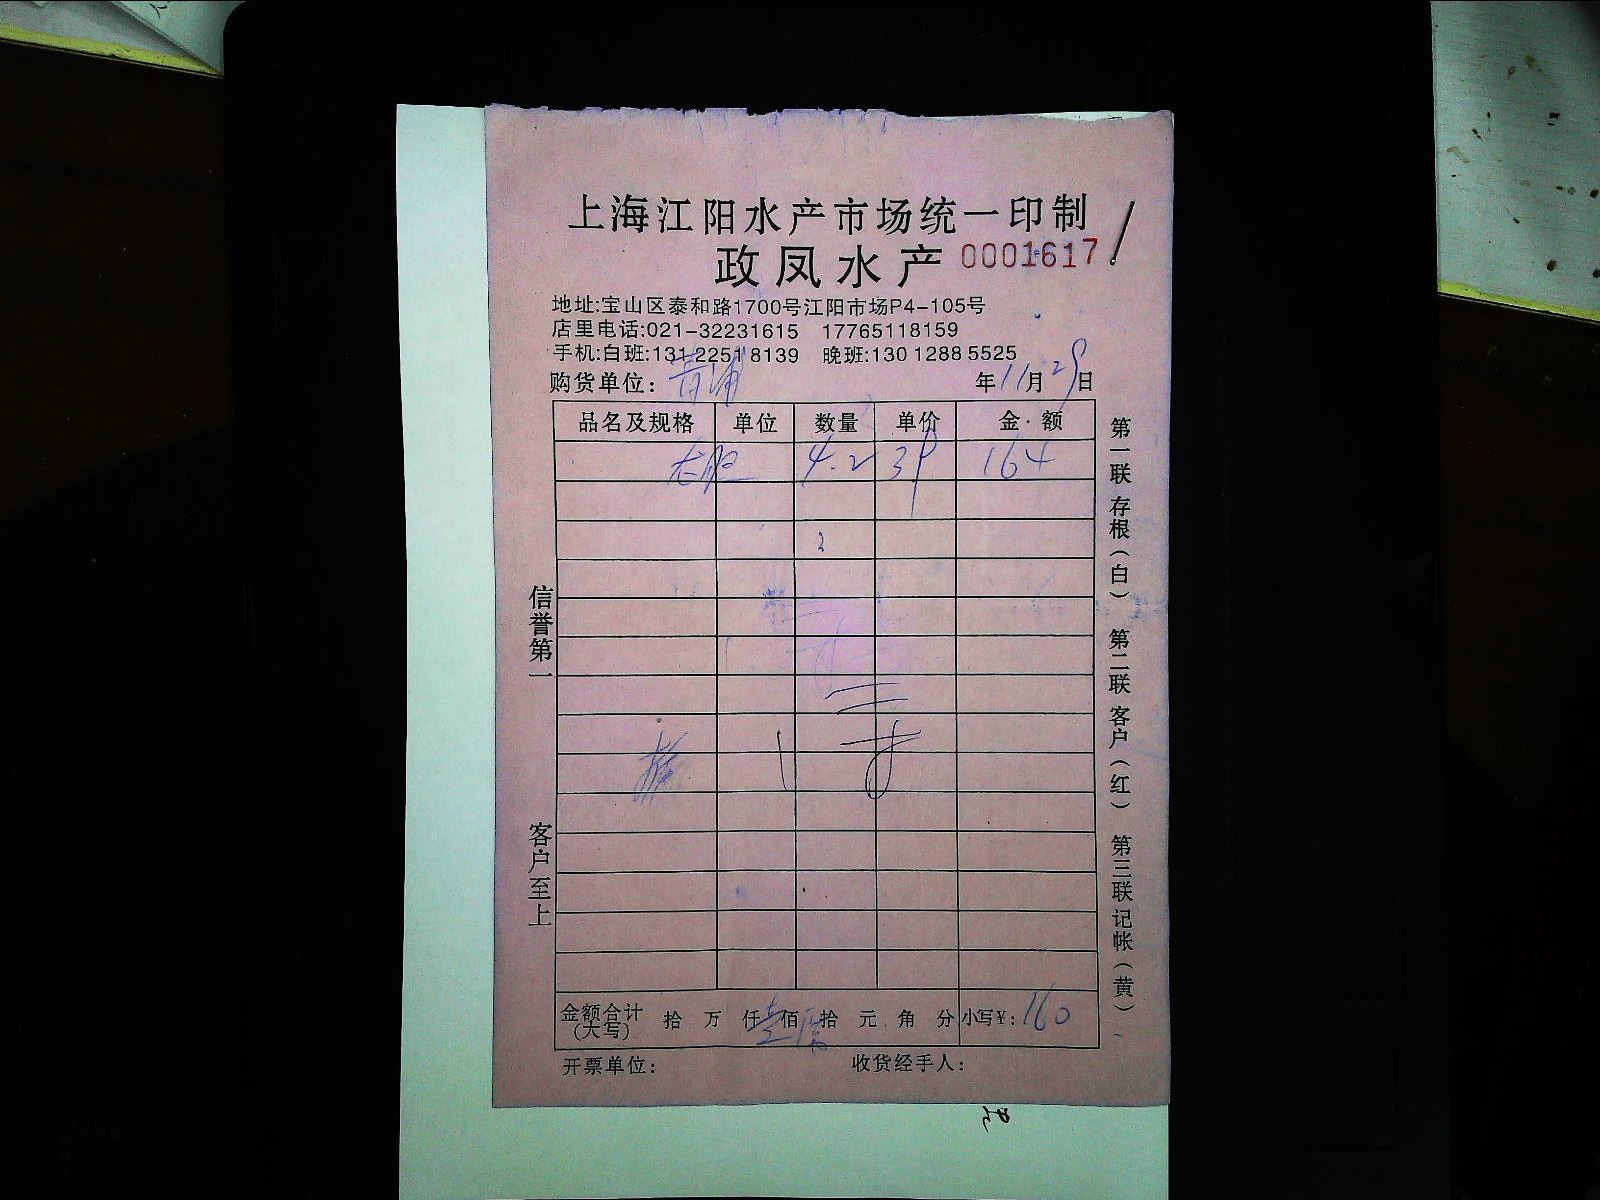 上海江阳水产市场统一印制
政凤水产 0001617
地址:宝山区泰和路1700号江阳市场P4-105号
店里电话:021-32231615 17765118159
手机:白班:13122518139 晚班:13012885525
购货单位: 青浦 年11月29日
品名及规格 单位 数量 单价 金额
4.2 39 164
信誉第一
客户至上
第一联存根(白) 第二联客户(红) 第三联记帐(黄)
金额合计(大写) 拾 万 仟 壹佰 陆拾 元 角 分 小写¥: 160
开票单位: 收货经手人: